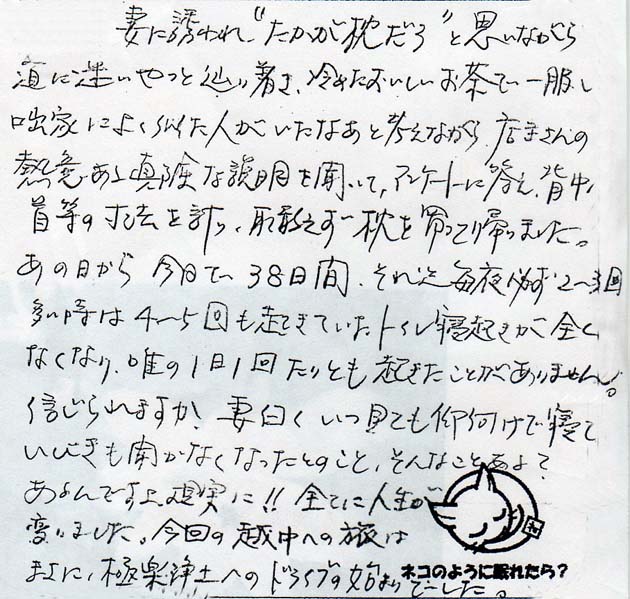 妻に誘われ、“たかが枕だろ”と思いながら
道に迷いやっと辿り着き、冷めたおいしいお茶で一服し
咄家によく似た人がいたなあと考えながら、店主さんの
熱意ある真険な説明を聞いて、アンケートに答え、背中
首等の寸法を計り、取敢えず枕を買って帰りました。
あの日から今日で38日間、それ迄毎夜必ず2〜3回
多い時は4〜5回も起きていたトイレ寝起きが全く
なくなり、唯の1日1回たりとも起きたことがありません。
信じられますか、妻曰く いつ見ても仰向けで寝て
いびきも聞かなくなったとのこと、そんなことあるよ?
あるんですよ現実に!! 全てに人生が
変りました。今回の越中への旅は
まさに、極楽浄土へのドライブの始まりでした。
ネコのように眠れたら?